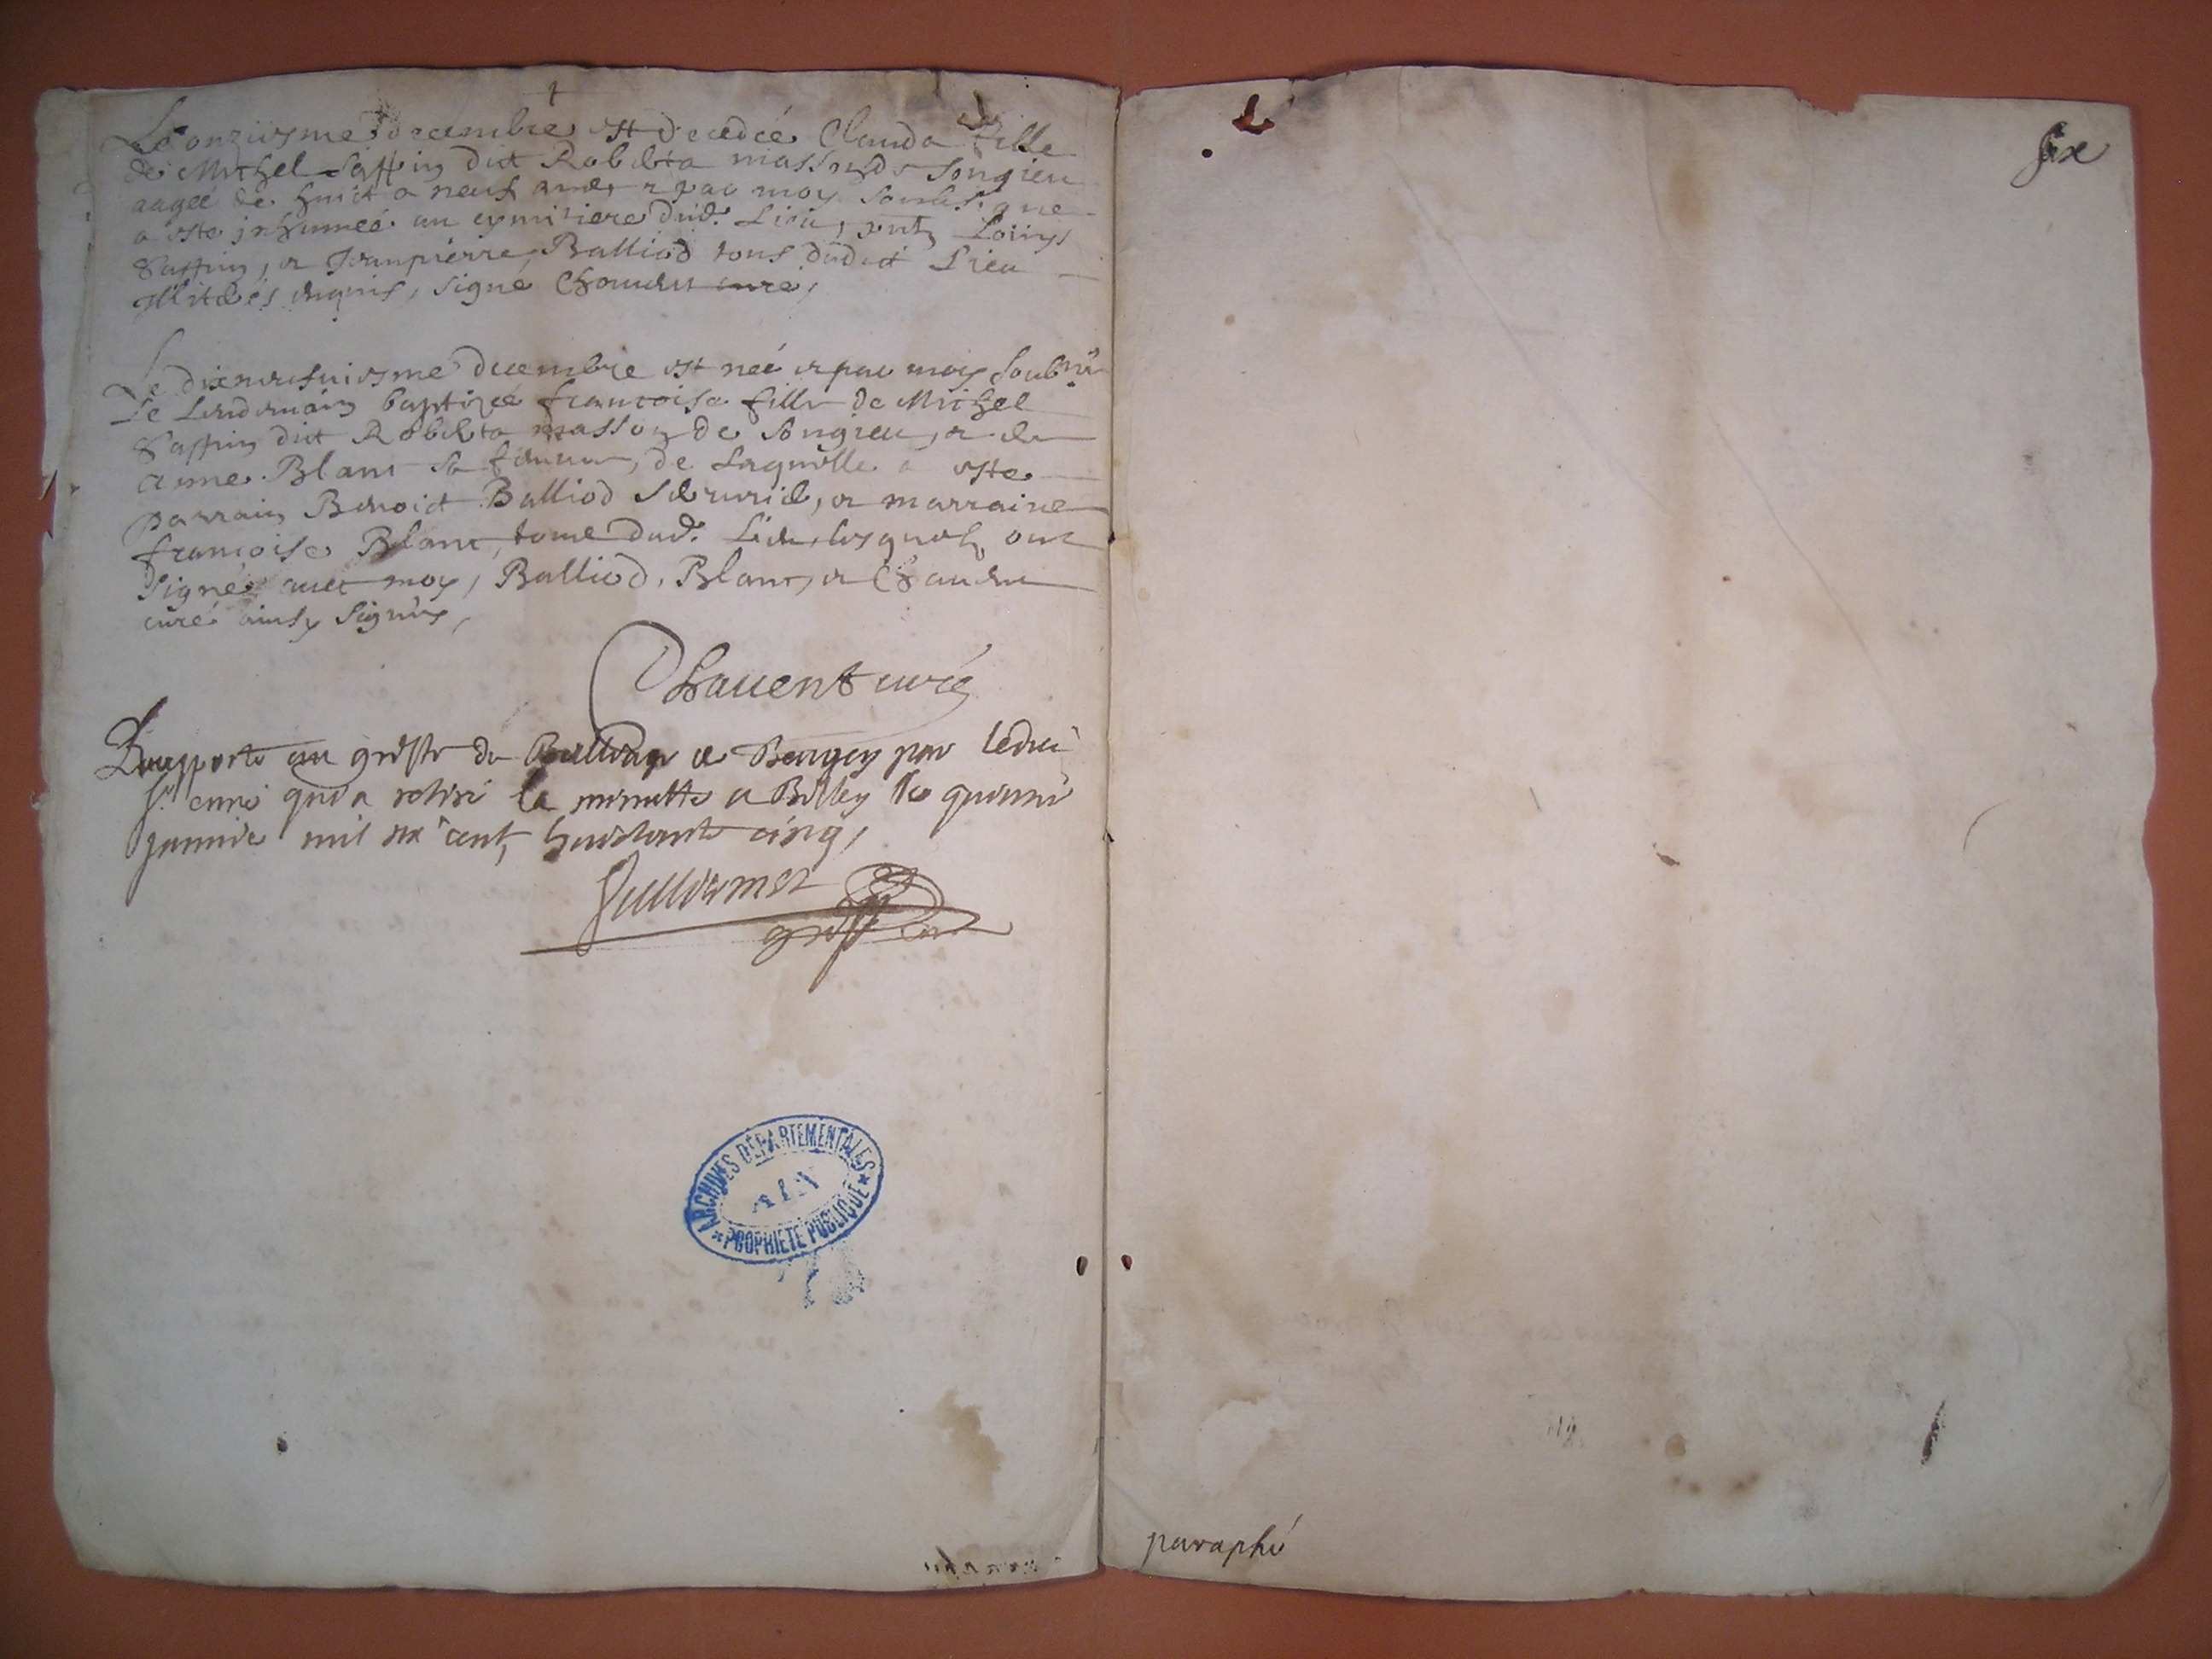 Le onziesme decembre est decedée Clauda fille
de Michel Saffin dict Roberta masson de Songieu
aagée de huict a neuf ans et par moy soubsigne
a esté inhumée au cymitiere dud. Lieu, pnts Louys
Saffin, et Jeanpierre Balliod tous dudict Lieu
illiteres enquis, signé Chauent curé,
Le dixneufuiesme decembre est neé et par moy soubné
Le Lendemain baptizée francoise fille de Michel
Saffin dict Roberta masson de Songieu, et de
Anne Blanc sa femme, de Laquelle a esté
parrain Benoict Balliod , et marraine
francoise Blanc, dud. Lieu, lesquels ont
signé auec moy, Balliod, Blanc, et Chauent
curé ainsy signés,
Chauent curé
Raapporté au greffe du Bailliage de Beugey par ledict
Sr. curé qui a retiré la minutte a Belley le
januier mil six cent huictante cinq,
greffier
ARCHIVES DÉPARTEMENTALES
AIN
* PROPRIÉTÉ PUBLIQUE *
six
paraphé